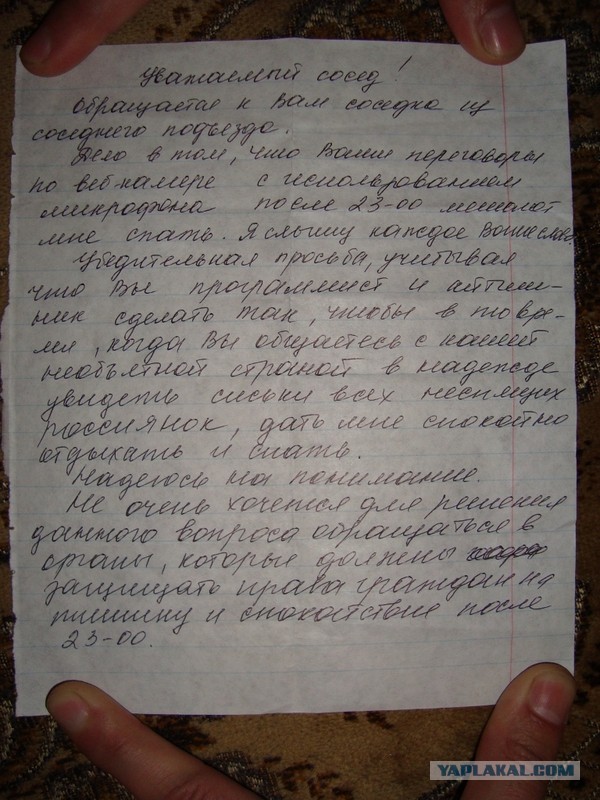 Уважаемый сосед!
Обращается к Вам соседка из
соседнего подъезда.
Дело в том, что Ваши переговоры
по веб-камере с использованием
микрофона после 23-00 мешают
мне спать. Я слышу каждое Ваше слово.
Убедительная просьба, учитывая
что Вы программист и айтиш-
ник сделать так, чтобы в то вре-
мя, когда Вы общаетесь с нашей
необъятной страной в надежде
увидеть сиськи всех неспящих
россиянок, дать мне спокойно
отдыхать и спать.
Надеюсь на понимание.
Не очень хочется для решения
данного вопроса обращаться в
органы, которые должны
защищать права граждан на
тишину и спокойствие после
23-00.
YAPLAKAL.COM